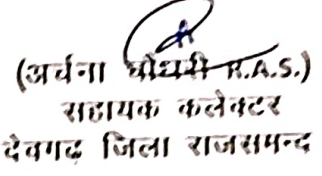 (अर्चना चौधरी R.A.S.)
सहायक कलेक्टर
देवगढ़ जिला राजसमन्द